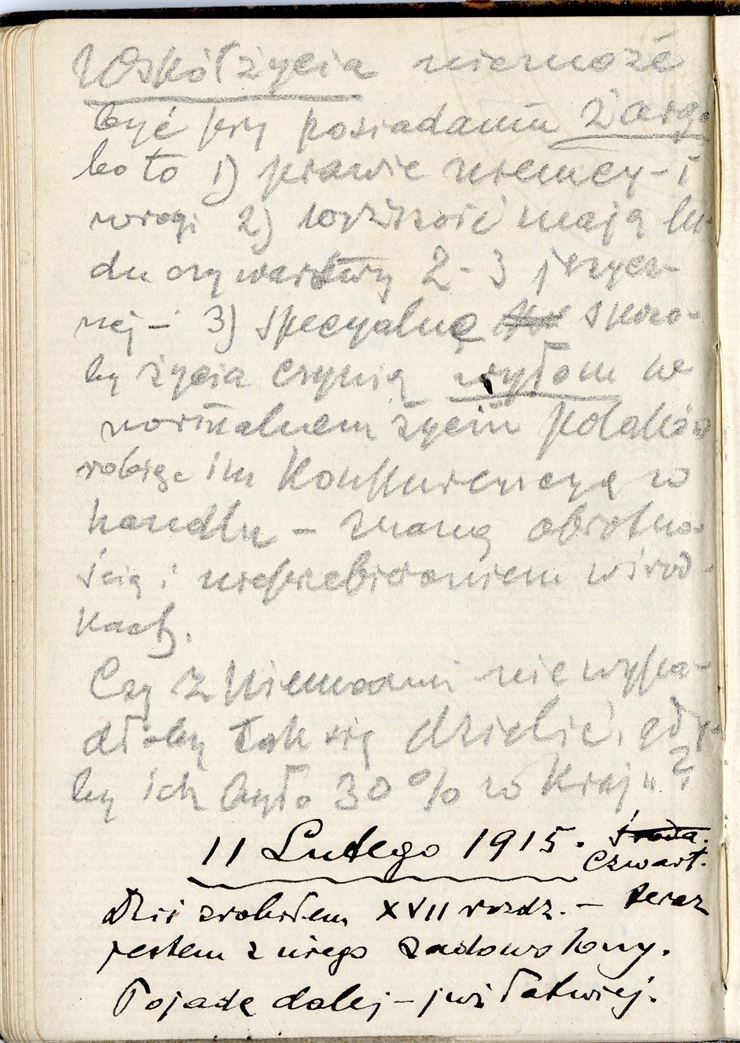 Współżycia niemoże
być przy posiadaniu żarg.
bo to 1) prawie niemcy - i
wrogi 2) wyższość mają lu-
du czy warstwy 2-3 języcz-
nej - 3) specyalne sposo-
by życia czynią wyłom we
normalnem życiu polaków
robiąc im Konkurencyę w
handlu - znaną obrotno-
ścią i nieprzebieraniem w środ-
kach.
Czy z Niemcami nie wypa-
dłoby tak się dzielić, gdy-
by ich było 30% w Kraju?
11 Lutego 1915. Środa.
Czwart.
Dziś zrobiłem XVII rozdz. - teraz
jestem z niego zadowolony.
Pojadę dalej - już łatwiej.